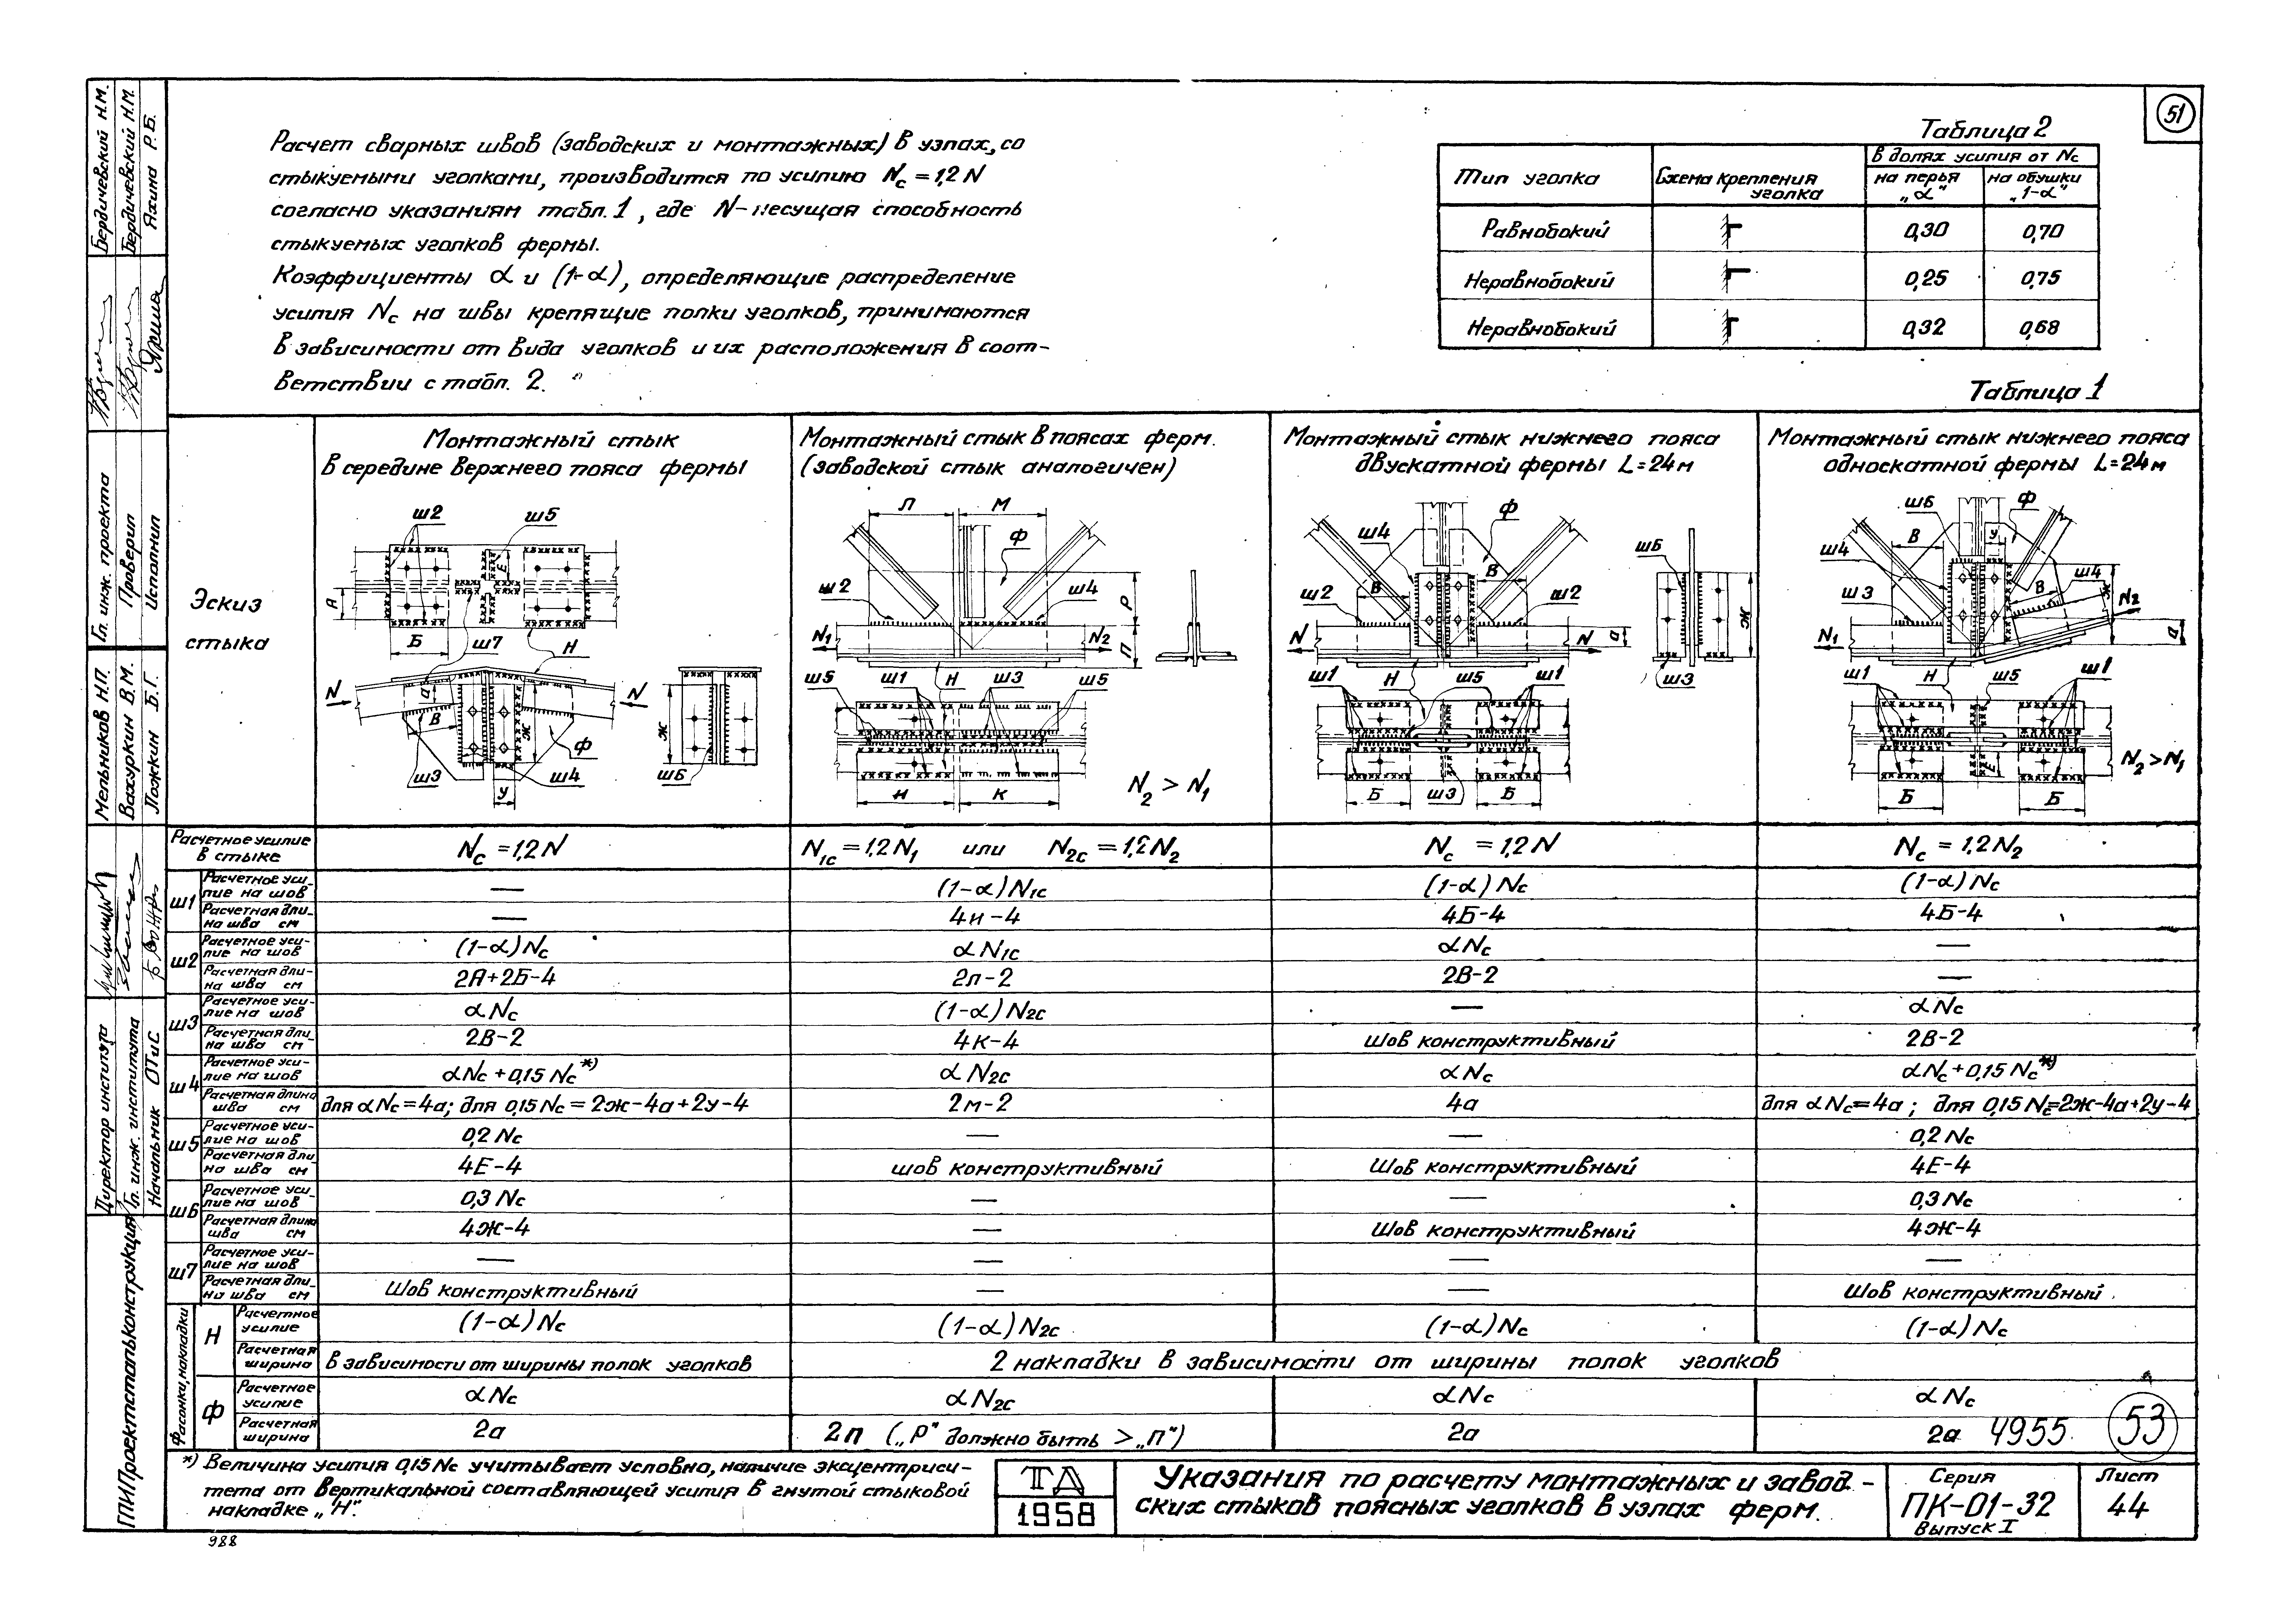 51
Расчет сварных швов (заводских и монтажных) в узлах, со
стыкуемыми уголками, производится по усилию Nс = 1,2 N
согласно указаниям табл. 1, где N – несущая способность
стыкуемых уголков фермы.
Коэффициенты α и (1-α), определяющие распределение
усилия Nс на швы крепящие полки уголков, принимаются
в зависимости от вида уголков и их расположения в соот-
ветствии с табл. 2.
Таблица 2
Тип уголка | Схема крепления уголка | В долях усилия от Nс
на перья „α“ | на обушки „1-α“
Равнобокий | 0,30 | 0,70
Неравнобокий | 0,25 | 0,75
Неравнобокий | 0,32 | 0,68
Таблица 1
Эскиз
стыка
Монтажный стык
в середине верхнего пояса фермы
ш2 ш5
А Е
Б ш7 Н
N а N
В Ж Ж
ш3 ш4 Ф ш6
У
Монтажный стык в поясах ферм.
(заводской стык аналогичен)
Л М
Ф
ш2 ш4 Р
N1 N2 П
ш5 ш1 Н ш3 ш5
И К
N2 > N1
Монтажный стык нижнего пояса
двускатной фермы L=24м
Ф
ш4 ш6
В В
ш2 ш2
N N а Ж
ш1 Н ш5 ш1 ш3
Б ш3 Б
Монтажный стык нижнего пояса
односкатной фермы L=24м
ш6 Ф
ш4 В У
ш3 В ш4 Ж
N2
N1 а
ш1 Н ш5 ш1
Е
N2 > N1
Б Б
Расчетное усилие в стыке | Nс = 1,2 N | N1с = 1,2 N1 или N2с = 1,2 N2 | Nс = 1,2 N | Nс = 1,2 N2
ш1 | Расчетное уси-лие на шов | — | (1-α) N1с | (1-α) Nс | (1-α) Nс
Расчетная дли-на шва см | — | 4и-4 | 4Б-4 | 4Б-4
ш2 | Расчетное уси-лие на шов | (1-α) Nс | α N1с | α Nс | —
Расчетная дли-на шва см | 2А+2Б-4 | 2л-2 | 2В-2 | —
ш3 | Расчетное уси-лие на шов | α Nс | (1-α) N2с | — | α Nс
Расчетная дли-на шва см | 2В-2 | 4к-4 | Шов конструктивный | 2В-2
ш4 | Расчетное уси-лие на шов | αNс + 0,15 Nс *) | α N2с | α Nс | αNс + 0,15 Nс *)
Расчетная длина шва см | для αNс = 4а; для 0,15 Nс = 2ж-4а+2у-4 | 2м-2 | 4а | для αNс = 4а; для 0,15 Nс = 2ж-4а+2у-4
ш5 | Расчетное уси-лие на шов | 0,2 Nс | — | — | 0,2 Nс
Расчетная дли-на шва см | 4Е-4 | шов конструктивный | Шов конструктивный | 4Е-4
ш6 | Расчетное уси-лие на шов | 0,3 Nс | — | — | 0,3 Nс
Расчетная длина шва см | 4Ж-4 | — | Шов конструктивный | 4Ж-4
ш7 | Расчетное уси-лие на шов | — | — | — | —
Расчетная дли-на шва см | Шов конструктивный | — | — | Шов конструктивный
Фасонки, накладки
Н | Расчетное усилие | (1-α) Nс | (1-α) N2с | (1-α) Nс | (1-α) Nс
Расчетная ширина | В зависимости от ширины полок уголков | 2 накладки в зависимости от ширины полок уголков
Ф | Расчетное усилие | α Nс | α N2с | α Nс | α Nс
Расчетная ширина | 2а | 2п („Р“ должно быть > „П“) | 2а | 2а
4955 53
*) Величина усилия 0,15 Nс учитывает условно, наличие эксцентриси-
тета от вертикальной составляющей усилия в гнутой стыковой
накладке „Н“.
ТД
1958
Указания по расчету монтажных и завод-
ских стыков поясных уголков в узлах ферм.
Серия
ПК-01-32
Выпуск I
Лист
44
988
ГПИ Проектстальконструкция
Директор института Мельников Н.П.
Гл. инж. института Вахуркин В.М.
Начальник ОТиС Ложкин Б.Г.
Гл. инж. проекта Бердичевский Н.М.
Проверил Бердичевский Н.М.
Исполнил Яхина Р.Б.